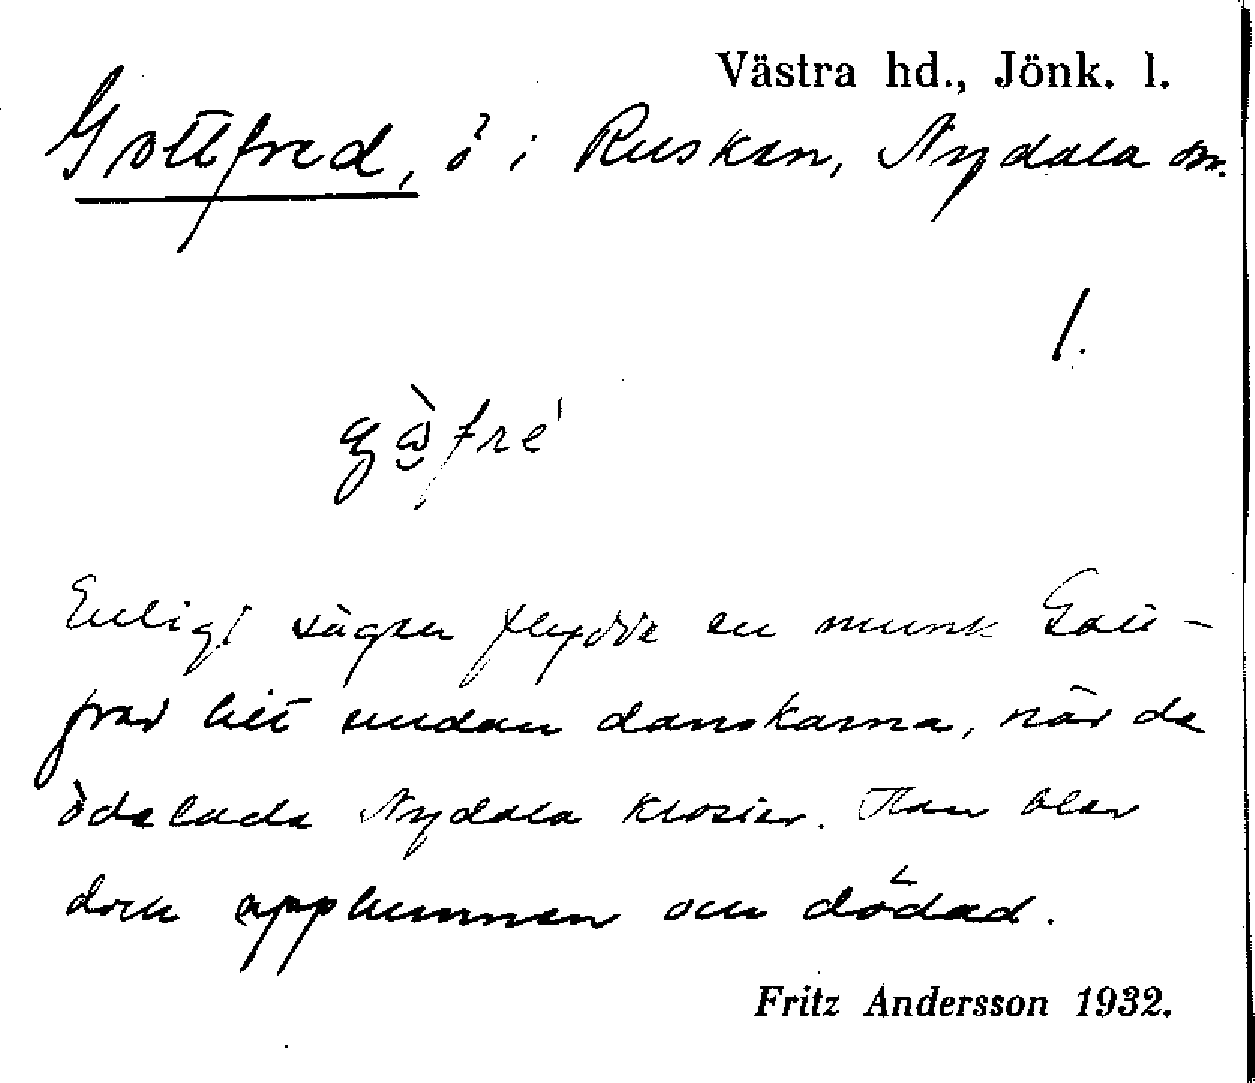 Västra hd., Jönk. l.
Gottfred, ö i Rusken, Nydala sn.
1.
Enligt sägen flydde en munk Gott-
fred hit undan danskarna, när de
ödelade Nydala kloster. Han blev
dock upphunnen och dödad.
Fritz Andersson 1932.